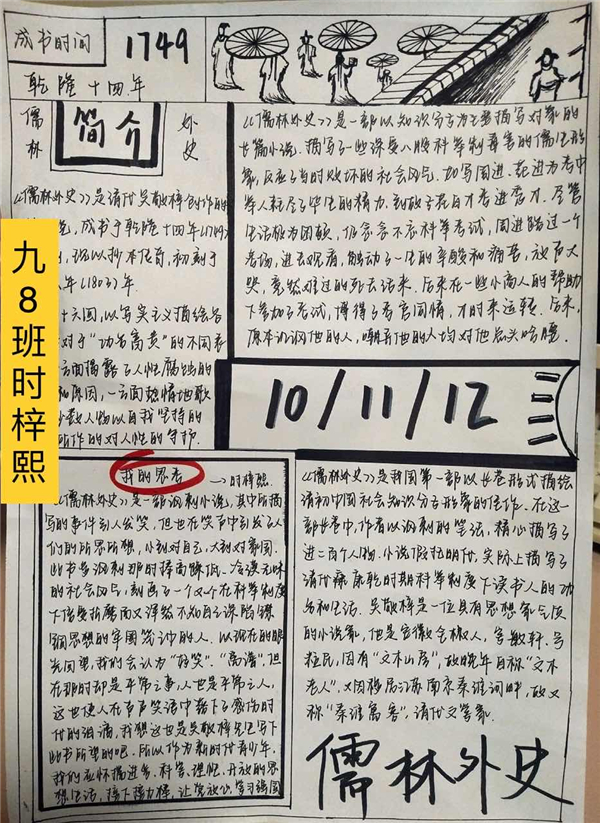 成书时间
1749
乾隆十四年
儒林
简介
外史
《儒林外史》是清代吴敬梓创作的
成书于乾隆十四年(1749)
现以抄本传奇,初刻于
年(1803)年
十六回,以写实主义描绘各
对于“功名富贵”的不同表
一方面揭露了人性腐蚀的
和原因,一方面热情地歌
少数人物以自我坚持的
所作的对人性的守护.
《儒林外史》是一部以知识分子为主要描写对象的
长篇小说。描写了一些深受八股科举制毒害的儒生形
象,反应了当时败坏的社会风气。如写周进、范进为考中
举人耗尽了毕生的精力,
生活极为困顿,仍念念不忘科举考试,周进路过一个
考场,进去观看,触动了一生的辛酸和痛苦,放声大
哭,竟然难过的死去活来。后来在一些小商人的帮助
下参加了考试,博得了考官同情,才时来运转。后来,
原本讥讽他的人,嘲弄他的人均对他点头哈腰。
10/11/12
我的思考
→时梓熙.
《儒林外史》是一部讽刺小说,其中所描
写的事件引人发笑,但也在笑声中引发了人
们的所思所想,小到对自己,大到对家国。
此书尝讽刺那时捧高踩低、冷漠无味
的社会风气,刻画了一个又一个在科举制度
下倍受折磨而又浑然不知自己深陷禁
锢思想的牢围笼中的人。以现在的眼
光回望,我们会认为“好笑”.“离谱”,但
在那时却是平常之事,人也是平常之人,
这也使人在声声笑语中落下了感伤时
代的泪滴,我想这也是吴敬梓先生写下
此书所望的吧。所以作为新时代青少年,
我们应怀揣进步、科学、理想、开放的思
想生活,
《儒林外史》是我国第一部以长卷形式描绘
清初中国社会知识分子形象的佳作。在这一
部长卷中,作者以讽刺的笔法,精心描写了
进二百个人物。小说假托明代,实际上描写了
清代康乾时期科举制度下读书人的功
名和生活。吴敬梓是一位具有思想家气质
的小说家,他是安徽全椒人,字敏轩,号
粒民,因有“文木山房”,故晚年自称“文木
老人”,又因移居江苏南京秦淮河畔,故又
称“秦淮寓客”,清代文学家.
儒林外史
九8班时梓熙